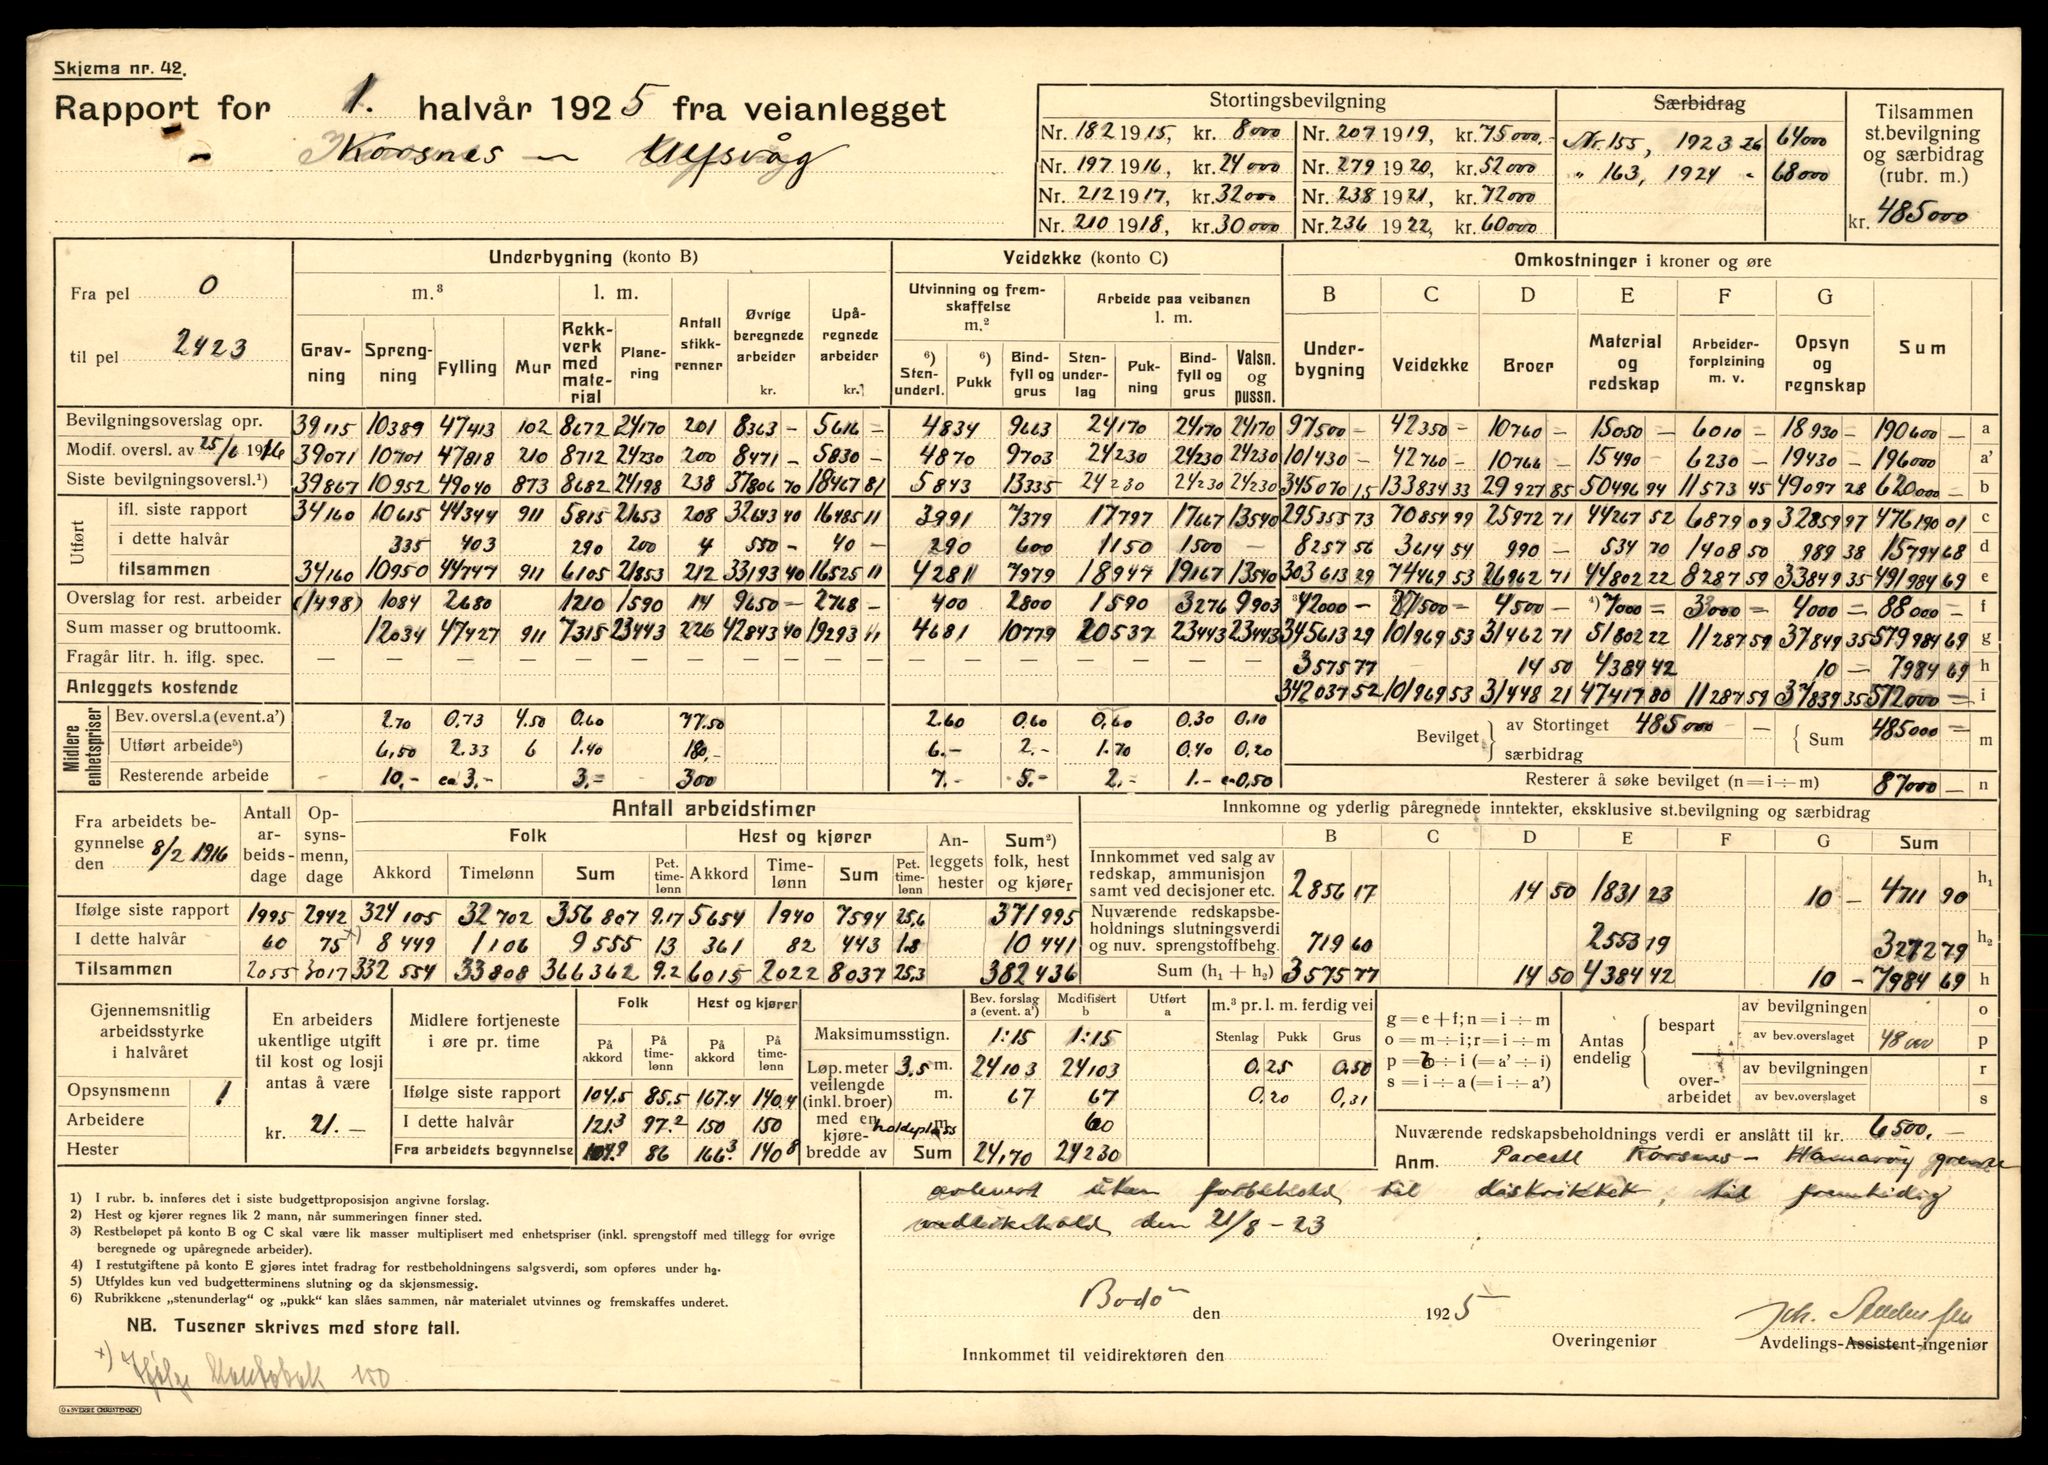 Skjema nr. 42.
Rapport for 1. halvår 1925 fra veianlegget
Korsnes – Ulfsvåg
Stortingsbevilgning
Nr. 182 1915, kr. 8000 Nr. 207 1919, kr. 75000.-
Nr. 197 1916, kr. 24000 Nr. 279 1920, kr. 52000
Nr. 212 1917, kr. 32000 Nr. 238 1921, kr. 72000
Nr. 210 1918, kr. 30000 Nr. 236 1922, kr. 60000
Særbidrag
Nr. 155, 1923 26 64000
" 163, 1924 - 68000
Tilsammen
st.bevilgning
og særbidrag
(rubr. m.)
kr. 485000
Fra pel 0
til pel 2423
Underbygning (konto B) Veidekke (konto C) Omkostninger i kroner og øre
m.³ l. m. Utvinning og fremskaffelse m.² Arbeide paa veibanen l. m.
B C D E F G
Gravning Sprengning Fylling Mur Rekkverk med material Planering Antall stikkrenner Øvrige beregnede arbeider kr. Upåregnede arbeider kr.
⁶) Stenunderl. ⁶) Pukk Bindfyll og grus Stenunderlag Pukning Bindfyll og grus Valsn. og pussn.
Underbygning Veidekke Broer Material og redskap Arbeiderforpleining m. v. Opsyn og regnskap Sum
Bevilgningsoverslag opr. 39115 10389 47413 102 8672 24170 201 8363 – 5616 – 4834 9663 24170 24170 24170 97500 – 42350 – 10760 – 15050 – 6010 – 18930 – 190600 – a
Modif. oversl. av 25/6 1916 39071 10701 47818 210 8712 24230 200 8471 – 5830 – 4870 9703 24230 24230 24230 101430 – 42760 – 10766 – 15490 – 6230 – 19430 – 196000 – a'
Siste bevilgningsoversl.¹) 39867 10952 49040 873 8682 24198 238 37806 70 18467 81 5843 13335 24230 24230 24230 345070 15 133834 33 29927 85 50496 94 11573 45 49097 28 620000 – b
Utført
ifl. siste rapport 34160 10615 44344 911 5815 21653 208 32643 40 16485 11 3991 7379 17797 17667 13540 295355 73 70854 99 25972 71 44267 52 6879 09 32859 97 476190 01 c
i dette halvår 335 403 290 200 4 550 – 40 – 290 600 1150 1500 – 8257 56 3614 54 990 – 534 70 1408 50 989 38 15794 68 d
tilsammen 34160 10950 44747 911 6105 21853 212 33193 40 16525 11 4281 7979 18947 19167 13540 303613 29 74469 53 26962 71 44802 22 8287 59 33849 35 491984 69 e
Overslag for rest. arbeider (1498) 1084 2680 1210 1590 14 9650 – 2768 – 400 2800 1590 3276 9903 ³42000 – 27500 – 4500 – ⁴)7000 = 3000 = 4000 = 88000 – f
Sum masser og bruttoomk. 12034 47427 911 7315 23443 226 42843 40 19293 11 4681 10779 20537 23443 23443 345613 29 101969 53 31462 71 51802 22 11287 59 37849 35 579984 69 g
Fragår litr. h. iflg. spec. – – – – – – – – – – – – – – 3575 77 14 50 4384 42 10 – 7984 69 h
Anleggets kostende 342037 52 101969 53 31448 21 47417 80 11287 59 37839 35 572000 = i
Midlere enhetspriser
Bev. oversl.a (event.a') 2.70 0.73 4.50 0.60 77.50 2.60 0.60 0.60 0.30 0.10
Utført arbeide⁵) 6,50 2.33 6 1.40 180.- 6.- 2.- 1.70 0.40 0.20
Resterende arbeide - 10.- ca 3.- 3.= 300 7.- 5.- 2.- 1.- ca 0,50
Bevilget av Stortinget 485000 – særbidrag Sum 485000 = m
Resterer å søke bevilget (n = i ÷ m) 87000 – n
Fra arbeidets begynnelse den 8/2 1916
Antall arbeidsdage Opsynsmenn, dage
Antall arbeidstimer
Folk Hest og kjører Anleggets hester Sum²) folk, hest og kjører
Akkord Timelønn Sum Pct. timelønn Akkord Timelønn Sum Pct. timelønn
Ifølge siste rapport 1995 2942 324 105 32 702 356 807 9.17 5654 1940 7594 25.6 371 995
I dette halvår 60 75 x) 8 449 1106 9 555 13 361 82 443 1.8 10 441
Tilsammen 2055 3017 332 554 33 808 366 362 9.2 6015 2022 8037 25.3 382 436
Innkomne og yderlig påregnede inntekter, eksklusive st.bevilgning og særbidrag
B C D E F G Sum
Innkommet ved salg av redskap, ammunisjon samt ved decisjoner etc. 2856 17 14 50 1831 23 10 – 4711 90 h₁
Nuværende redskapsbeholdnings slutningsverdi og nuv. sprengstoffbehg. 719 60 2553 19 3272 79 h₂
Sum (h₁ + h₂) 3575 77 14 50 4384 42 10 – 7984 69 h
Gjennemsnitlig arbeidsstyrke i halvåret
Opsynsmenn 1
Arbeidere
Hester
En arbeiders ukentlige utgift til kost og losji antas å være
kr. 21.-
Midlere fortjeneste i øre pr. time
Folk Hest og kjører
På akkord På timelønn På akkord På timelønn
Ifølge siste rapport 104.5 85.5 167.4 140.4
I dette halvår 121.3 97.2 150 150
Fra arbeidets begynnelse 104.9 86 166.3 140.8
Bev. forslag a (event. a') Modifisert b Utført a
Maksimumsstign. 1:15 1:15
Løp. meter veilengde (inkl. broer) med en kjørebredde av
3.5 m. 24103 24103
m. 67 67
holdeplass 60
Sum 24170 24230
m.³ pr. l. m. ferdig vei
Stenlag Pukk Grus
0.25 0.50
0.20 0,31
g = e + f; n = i ÷ m
o = m ÷ i; r = i ÷ m
p = b ÷ i (= a' ÷ i)
s = i ÷ a (= i ÷ a')
Antas endelig
bespart
av bevilgningen o
av bev.overslaget 48000 p
overarbeidet
av bevilgningen r
av bev.overslaget s
Nuværende redskapsbeholdnings verdi er anslått til kr. 6500.-
Anm. Parcell Korsnes – Hamarøy grense
avlevert uten forbehold til distriktet, til fremtidig
vedlikehold den 21/8 – 23
1) I rubr. b. innføres det i siste budgettproposisjon angivne forslag.
2) Hest og kjører regnes lik 2 mann, når summeringen finner sted.
3) Restbeløpet på konto B og C skal være lik masser multiplisert med enhetspriser (inkl. sprengstoff med tillegg for øvrige
beregnede og upåregnede arbeider).
4) I restutgiftene på konto E gjøres intet fradrag for restbeholdningens salgsverdi, som opføres under h₂.
5) Utfyldes kun ved budgetterminens slutning og da skjønsmessig.
6) Rubrikkene „stenunderlag" og „pukk" kan slåes sammen, når materialet utvinnes og fremskaffes underet.
NB. Tusener skrives med store tall.
x) Ifølge 150
Bodö den 1925
Overingeniør
Avdelings-Assistent-ingeniør
Innkommet til veidirektøren den
O. & SVERRE CHRISTENSEN